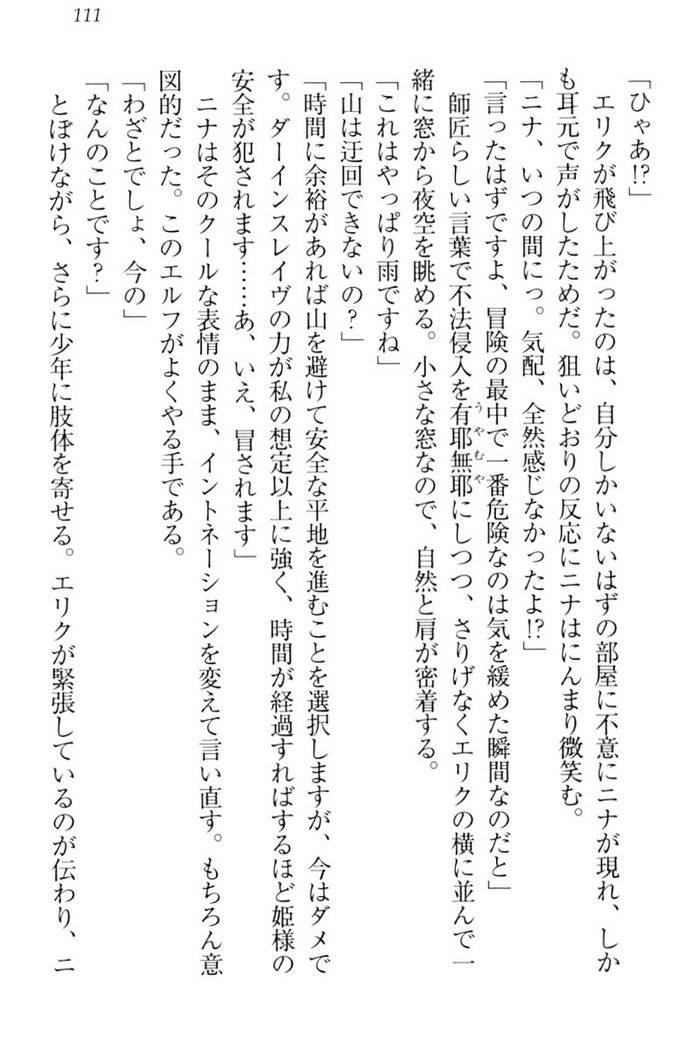 111
「ひゃあ!?」
エリクが飛び上がったのは、自分しかいないはずの部屋に不意にニナが現れ、しか
も耳元で声がしたためだ。狙いどおりの反応にニナはにんまり微笑む。
「ニナ、いつの間にっ。気配、全然感じなかったよ!?」
「言ったはずですよ、冒険の最中で一番危険なのは気を緩めた瞬間なのだと」
師匠らしい言葉で不法侵入を有耶無耶にしつつ、さりげなくエリクの横に並んで一
緒に窓から夜空を眺める。小さな窓なので、自然と肩が密着する。
「これはやっぱり雨ですね」
「山は迂回できないの?」
「時間に余裕があれば山を避けて安全な平地を進むことを選択しますが、今はダメで
す。ダーインスレイヴの力が私の想定以上に強く、時間が経過すればするほど姫様の
安全が犯されます……あ、いえ、冒されます」
ニナはそのクールな表情のまま、イントネーションを変えて言い直す。もちろん意
図的だった。このエルフがよくやる手である。
「わざとでしょ、今の」
「なんのことです?」
とぼけながら、さらに少年に肢体を寄せる。エリクが緊張しているのが伝わり、ニ